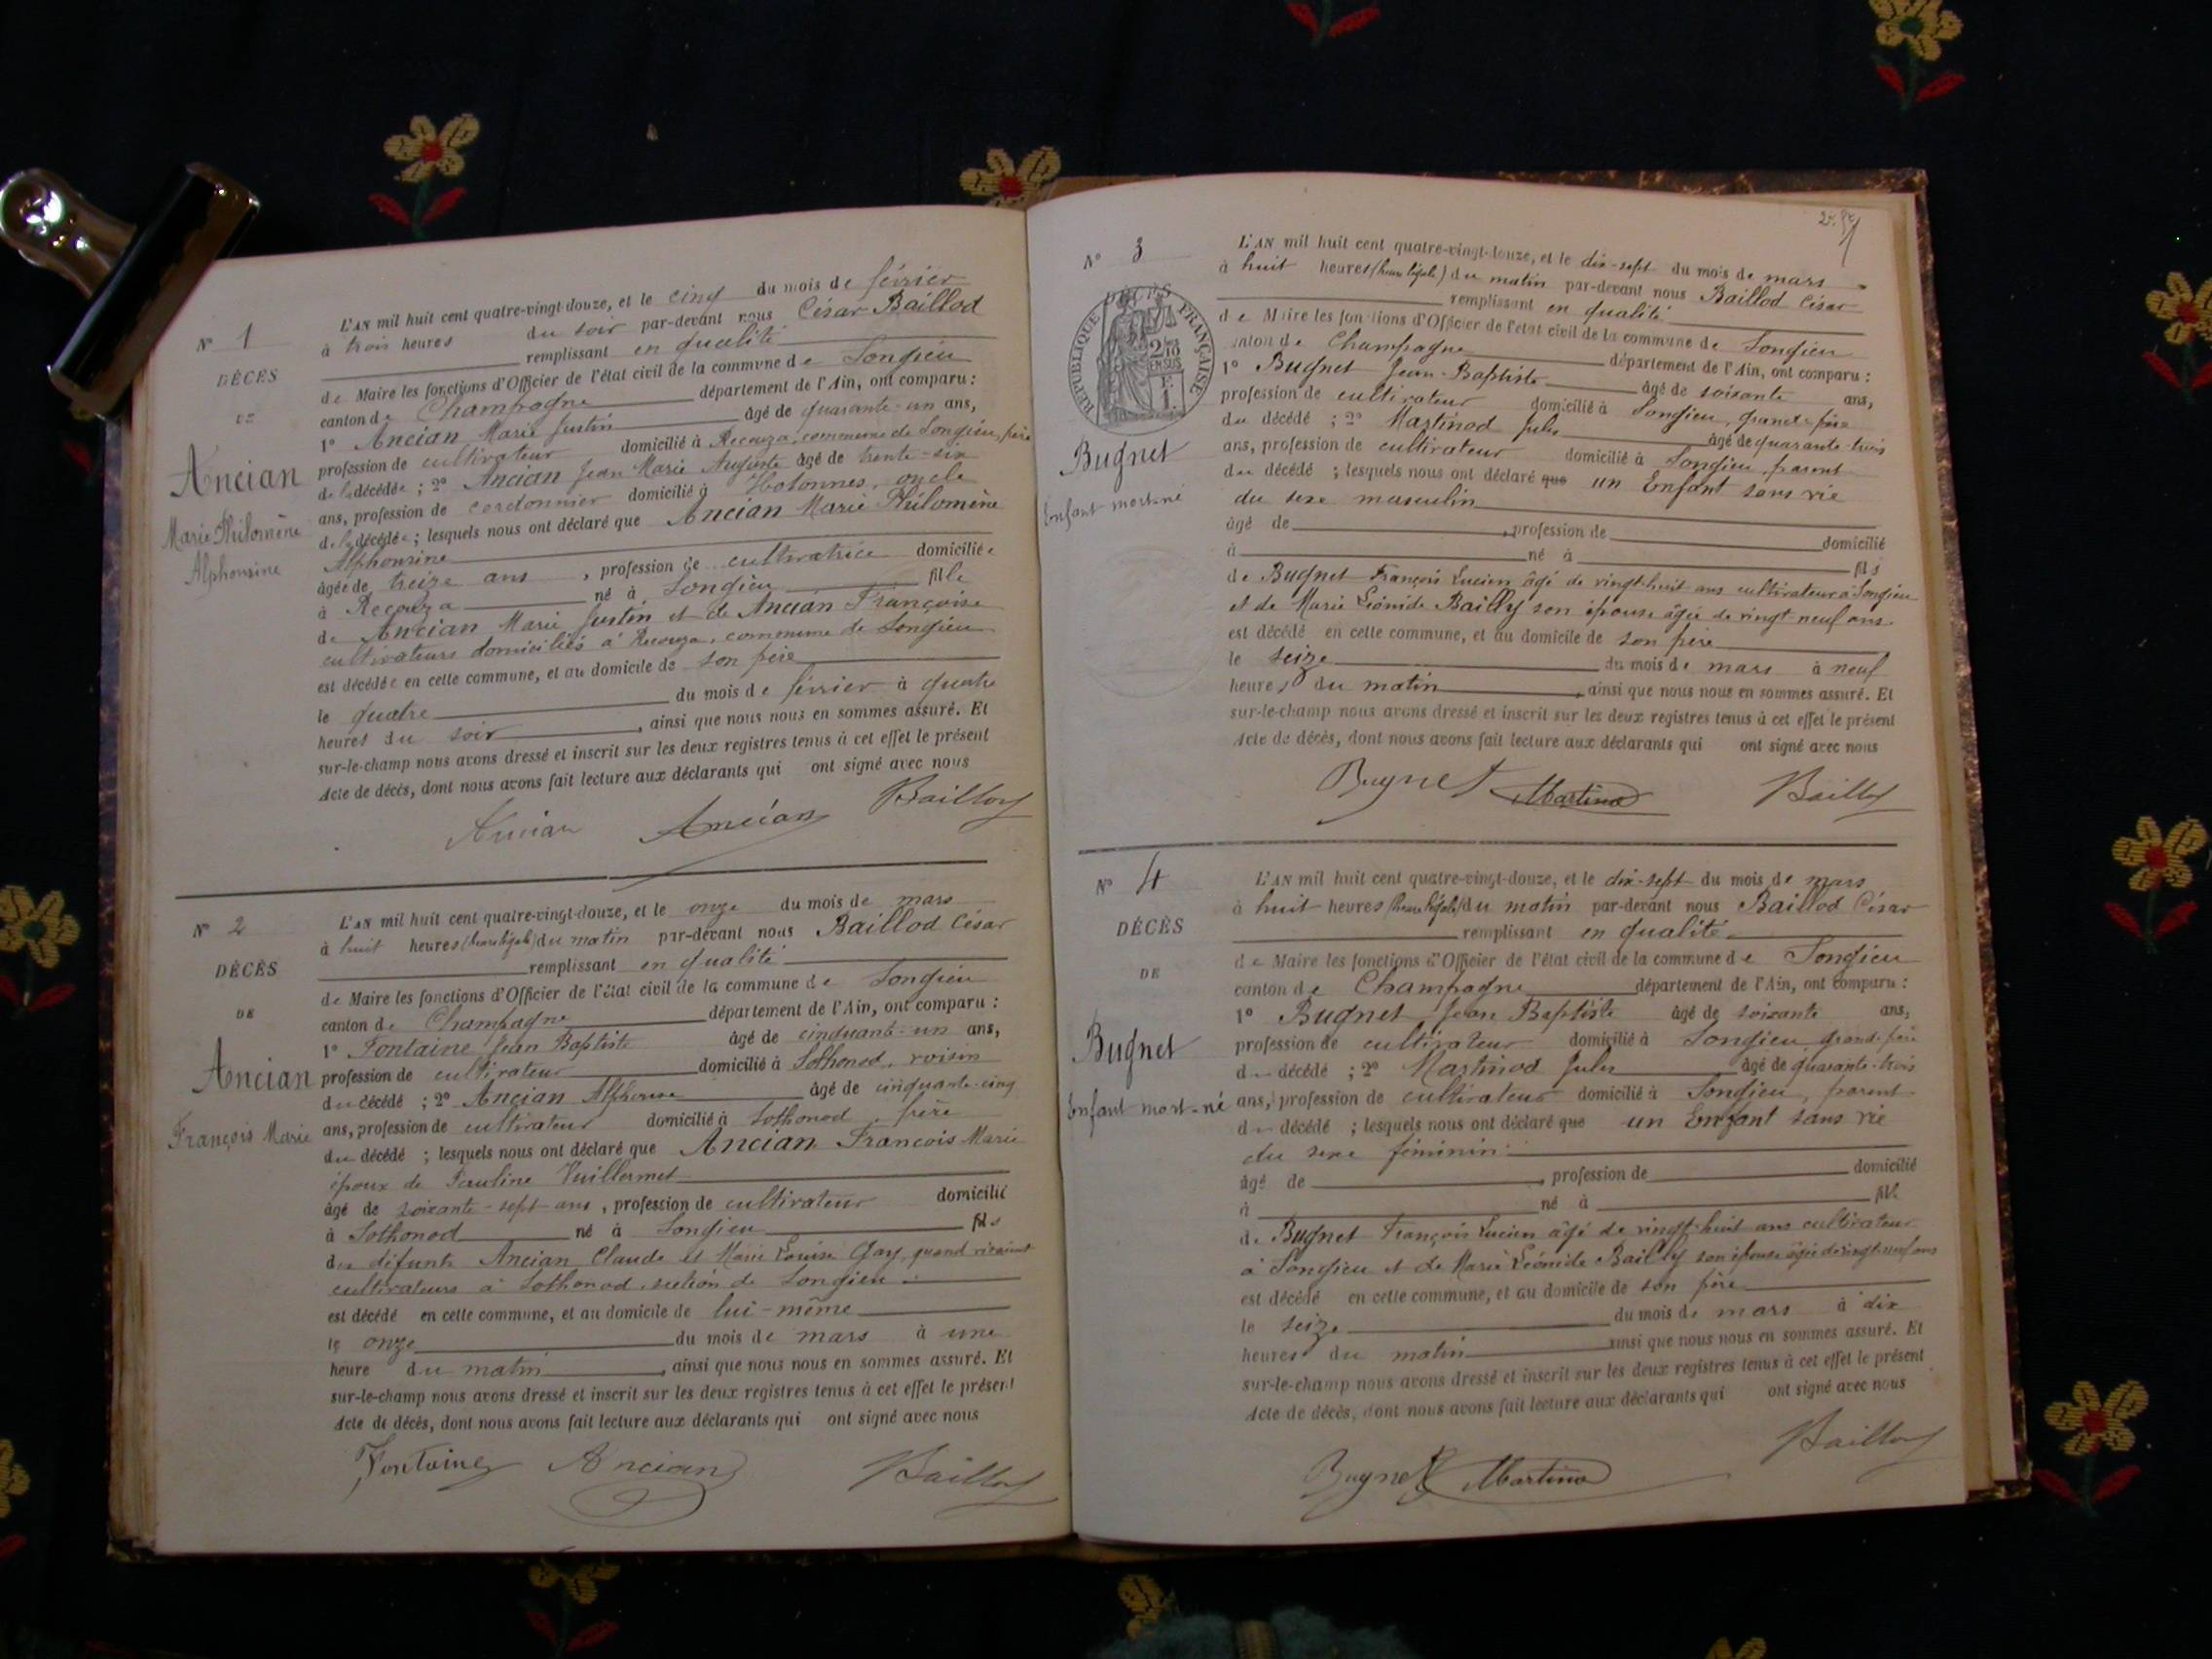 N° 1
DÉCÈS
DE
Ancian
Marie Philomène
Alphonsine
L'AN mil huit cent quatre-vingt-douze, et le cinq du mois de février
à trois heures du soir par-devant nous César Baillod
remplissant en qualité
de Maire les fonctions d'Officier de l'état civil de la commune de Songieu
canton de Champagne département de l'Ain, ont comparu :
1° Ancian Marie Justin âgé de quarante-un ans,
profession de cultivateur domicilié à Recouza, commune de Songieu, père
de la décédée ; 2° Ancian Jean Marie Auguste âgé de trente-six
ans, profession de cordonnier domicilié à Hotonnes, oncle
de la décédée ; lesquels nous ont déclaré que Ancian Marie Philomène
Alphonsine
âgée de treize ans, profession de cultivatrice domiciliée
à Recouza né à Songieu fille
de Ancian Marie Justin et de Ancian Françoise
cultivateurs domiciliés à Recouza, commune de Songieu
est décédée en cette commune, et au domicile de son père
le quatre du mois de février à quatre
heures du soir, ainsi que nous nous en sommes assuré. Et
sur-le-champ nous avons dressé et inscrit sur les deux registres tenus à cet effet le présent
Acte de décès, dont nous avons fait lecture aux déclarants qui ont signé avec nous
Ancian Ancian Baillod
N° 2
DÉCÈS
DE
Ancian
François Marie
L'AN mil huit cent quatre-vingt-douze, et le onze du mois de mars
à huit heures (heure légale) du matin par-devant nous Baillod César
remplissant en qualité
de Maire les fonctions d'Officier de l'état civil de la commune de Songieu
canton de Champagne département de l'Ain, ont comparu :
1° Fontaine Jean Baptiste âgé de cinquante-un ans,
profession de cultivateur domicilié à Sothonod, voisin
du décédé ; 2° Ancian Alphonse âgé de cinquante-cinq
ans, profession de cultivateur domicilié à Sothonod, frère
du décédé ; lesquels nous ont déclaré que Ancian François Marie
époux de Pauline Vuillermet
âgé de soixante-sept ans, profession de cultivateur domicilié
à Sothonod né à Songieu fils
de défunts Ancian Claude et Marie Louise Gay, quand vivaient
cultivateurs à Sothonod, section de Songieu
est décédé en cette commune, et au domicile de lui-même
le onze du mois de mars à une
heure du matin, ainsi que nous nous en sommes assuré. Et
sur-le-champ nous avons dressé et inscrit sur les deux registres tenus à cet effet le présent
Acte de décès, dont nous avons fait lecture aux déclarants qui ont signé avec nous
Fontaine Ancian Baillod
N° 3
DÉCÈS
RÉPUBLIQUE FRANÇAISE
Bugnet
Enfant mort-né
L'AN mil huit cent quatre-vingt-douze, et le dix-sept du mois de mars
à huit heures (heure légale) du matin par-devant nous Baillod César
remplissant en qualité
de Maire les fonctions d'Officier de l'état civil de la commune de Songieu
canton de Champagne département de l'Ain, ont comparu :
1° Bugnet Jean-Baptiste âgé de soixante ans,
profession de cultivateur domicilié à Songieu, grand-père
du décédé ; 2° Martinod Jules âgé de quarante-trois
ans, profession de cultivateur domicilié à Songieu, parent
du décédé ; lesquels nous ont déclaré que un Enfant sans vie
du sexe masculin
âgé de, profession de domicilié
à né à fils
de Bugnet François Lucien âgé de vingt-huit ans cultivateur à Songieu
et de Marie Léonide Bailly son épouse âgée de vingt-neuf ans
est décédé en cette commune, et au domicile de son père
le seize du mois de mars à neuf
heures du matin, ainsi que nous nous en sommes assuré. Et
sur-le-champ nous avons dressé et inscrit sur les deux registres tenus à cet effet le présent
Acte de décès, dont nous avons fait lecture aux déclarants qui ont signé avec nous
Bugnet Martinod Baillod
N° 4
DÉCÈS
DE
Bugnet
Enfant mort-né
L'AN mil huit cent quatre-vingt-douze, et le dix-sept du mois de mars
à huit heures (heure légale) du matin par-devant nous Baillod César
remplissant en qualité
de Maire les fonctions d'Officier de l'état civil de la commune de Songieu
canton de Champagne département de l'Ain, ont comparu :
1° Bugnet Jean Baptiste âgé de soixante ans,
profession de cultivateur domicilié à Songieu grand-père
du décédé ; 2° Martinod Jules âgé de quarante-trois
ans, profession de cultivateur domicilié à Songieu, parent
du décédé ; lesquels nous ont déclaré que un Enfant sans vie
du sexe féminin
âgé de, profession de domicilié
à né à fille
de Bugnet François Lucien âgé de vingt-huit ans cultivateur
à Songieu et de Marie Léonide Bailly son épouse âgée de vingt-neuf ans
est décédé en cette commune, et au domicile de son père
le seize du mois de mars à dix
heures du matin ainsi que nous nous en sommes assuré. Et
sur-le-champ nous avons dressé et inscrit sur les deux registres tenus à cet effet le présent
Acte de décès, dont nous avons fait lecture aux déclarants qui ont signé avec nous
Bugnet Martinod Baillod